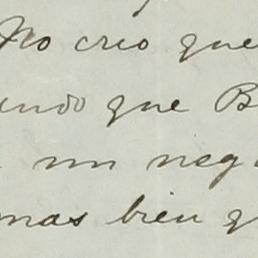 No creo que
ando que B
un neg
mas bien q